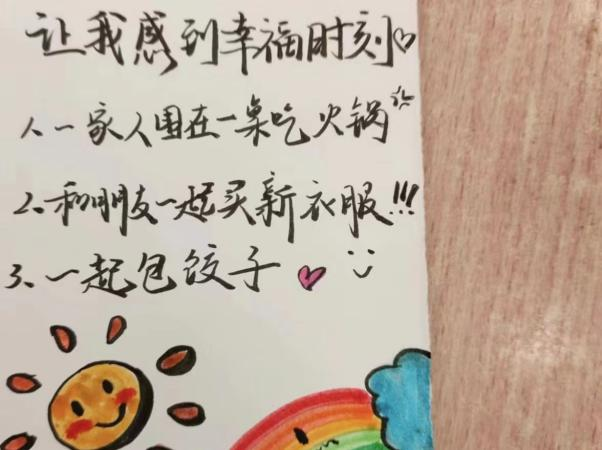 让我感到幸福时刻
1.一家人围在一桌吃火锅
2.和朋友一起买新衣服!!!
3.一起包饺子